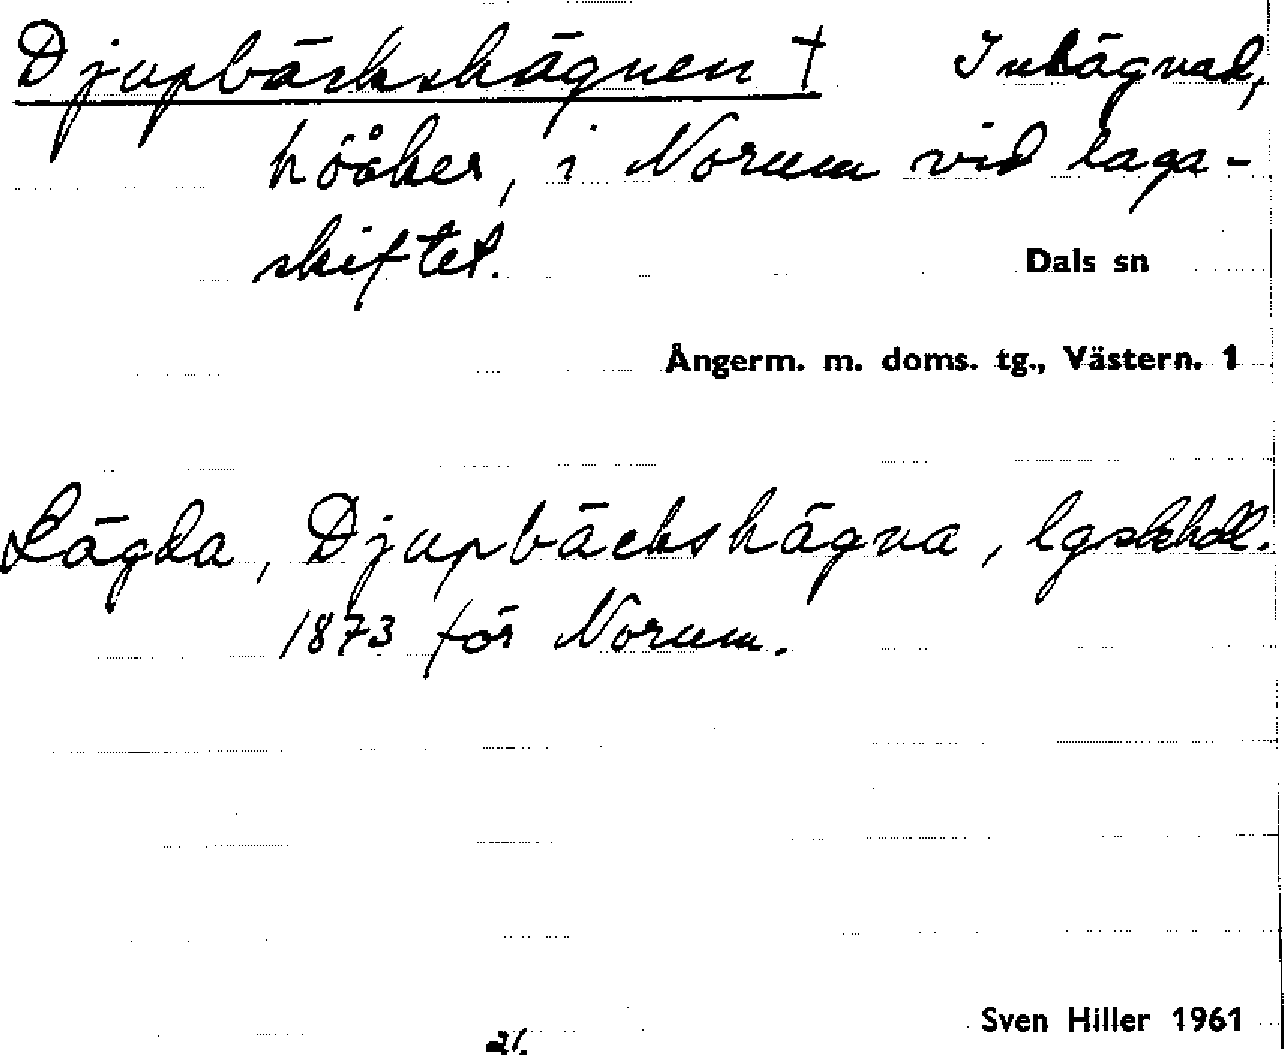 Djupbäckshägnen † Inhägnad,
höåker, i Norum vid laga-
skiftet.
Dals sn
Ångerm. m. doms. tg., Västern. 1
Lägda, Djupbäckshägna, lgskhdl.
1873 för Norum.
Sven Hiller 1961
21.